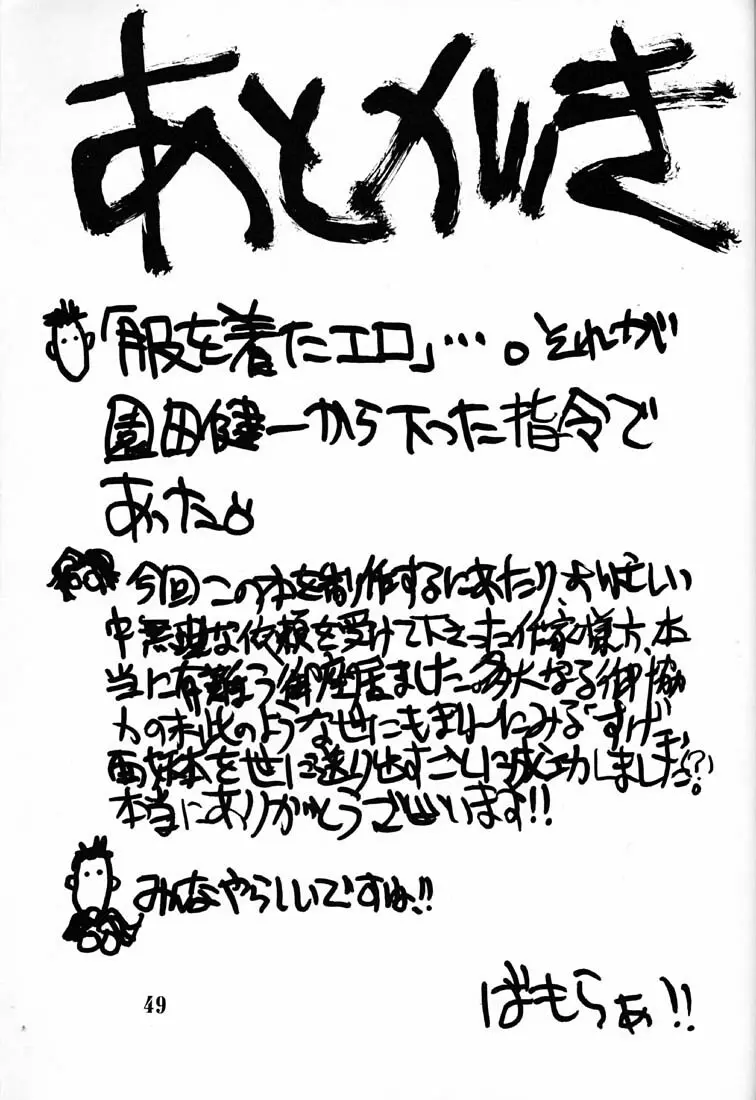 あとがき
「服を着たエロ」…。それが
園田健一から下った指令で
あった。
今回この本を制作するにあたり、お忙しい
中無理な依頼を受けて下さった作家様方、本
当に有難う御座居ました。多大なる御協
力の末此のような世にもまれにみる「すげ
面妖本を世に送り出すことに成功しました?」
本当にありがとうございます!!
みんなやらしいですね!!
ばもらぁ!!
49